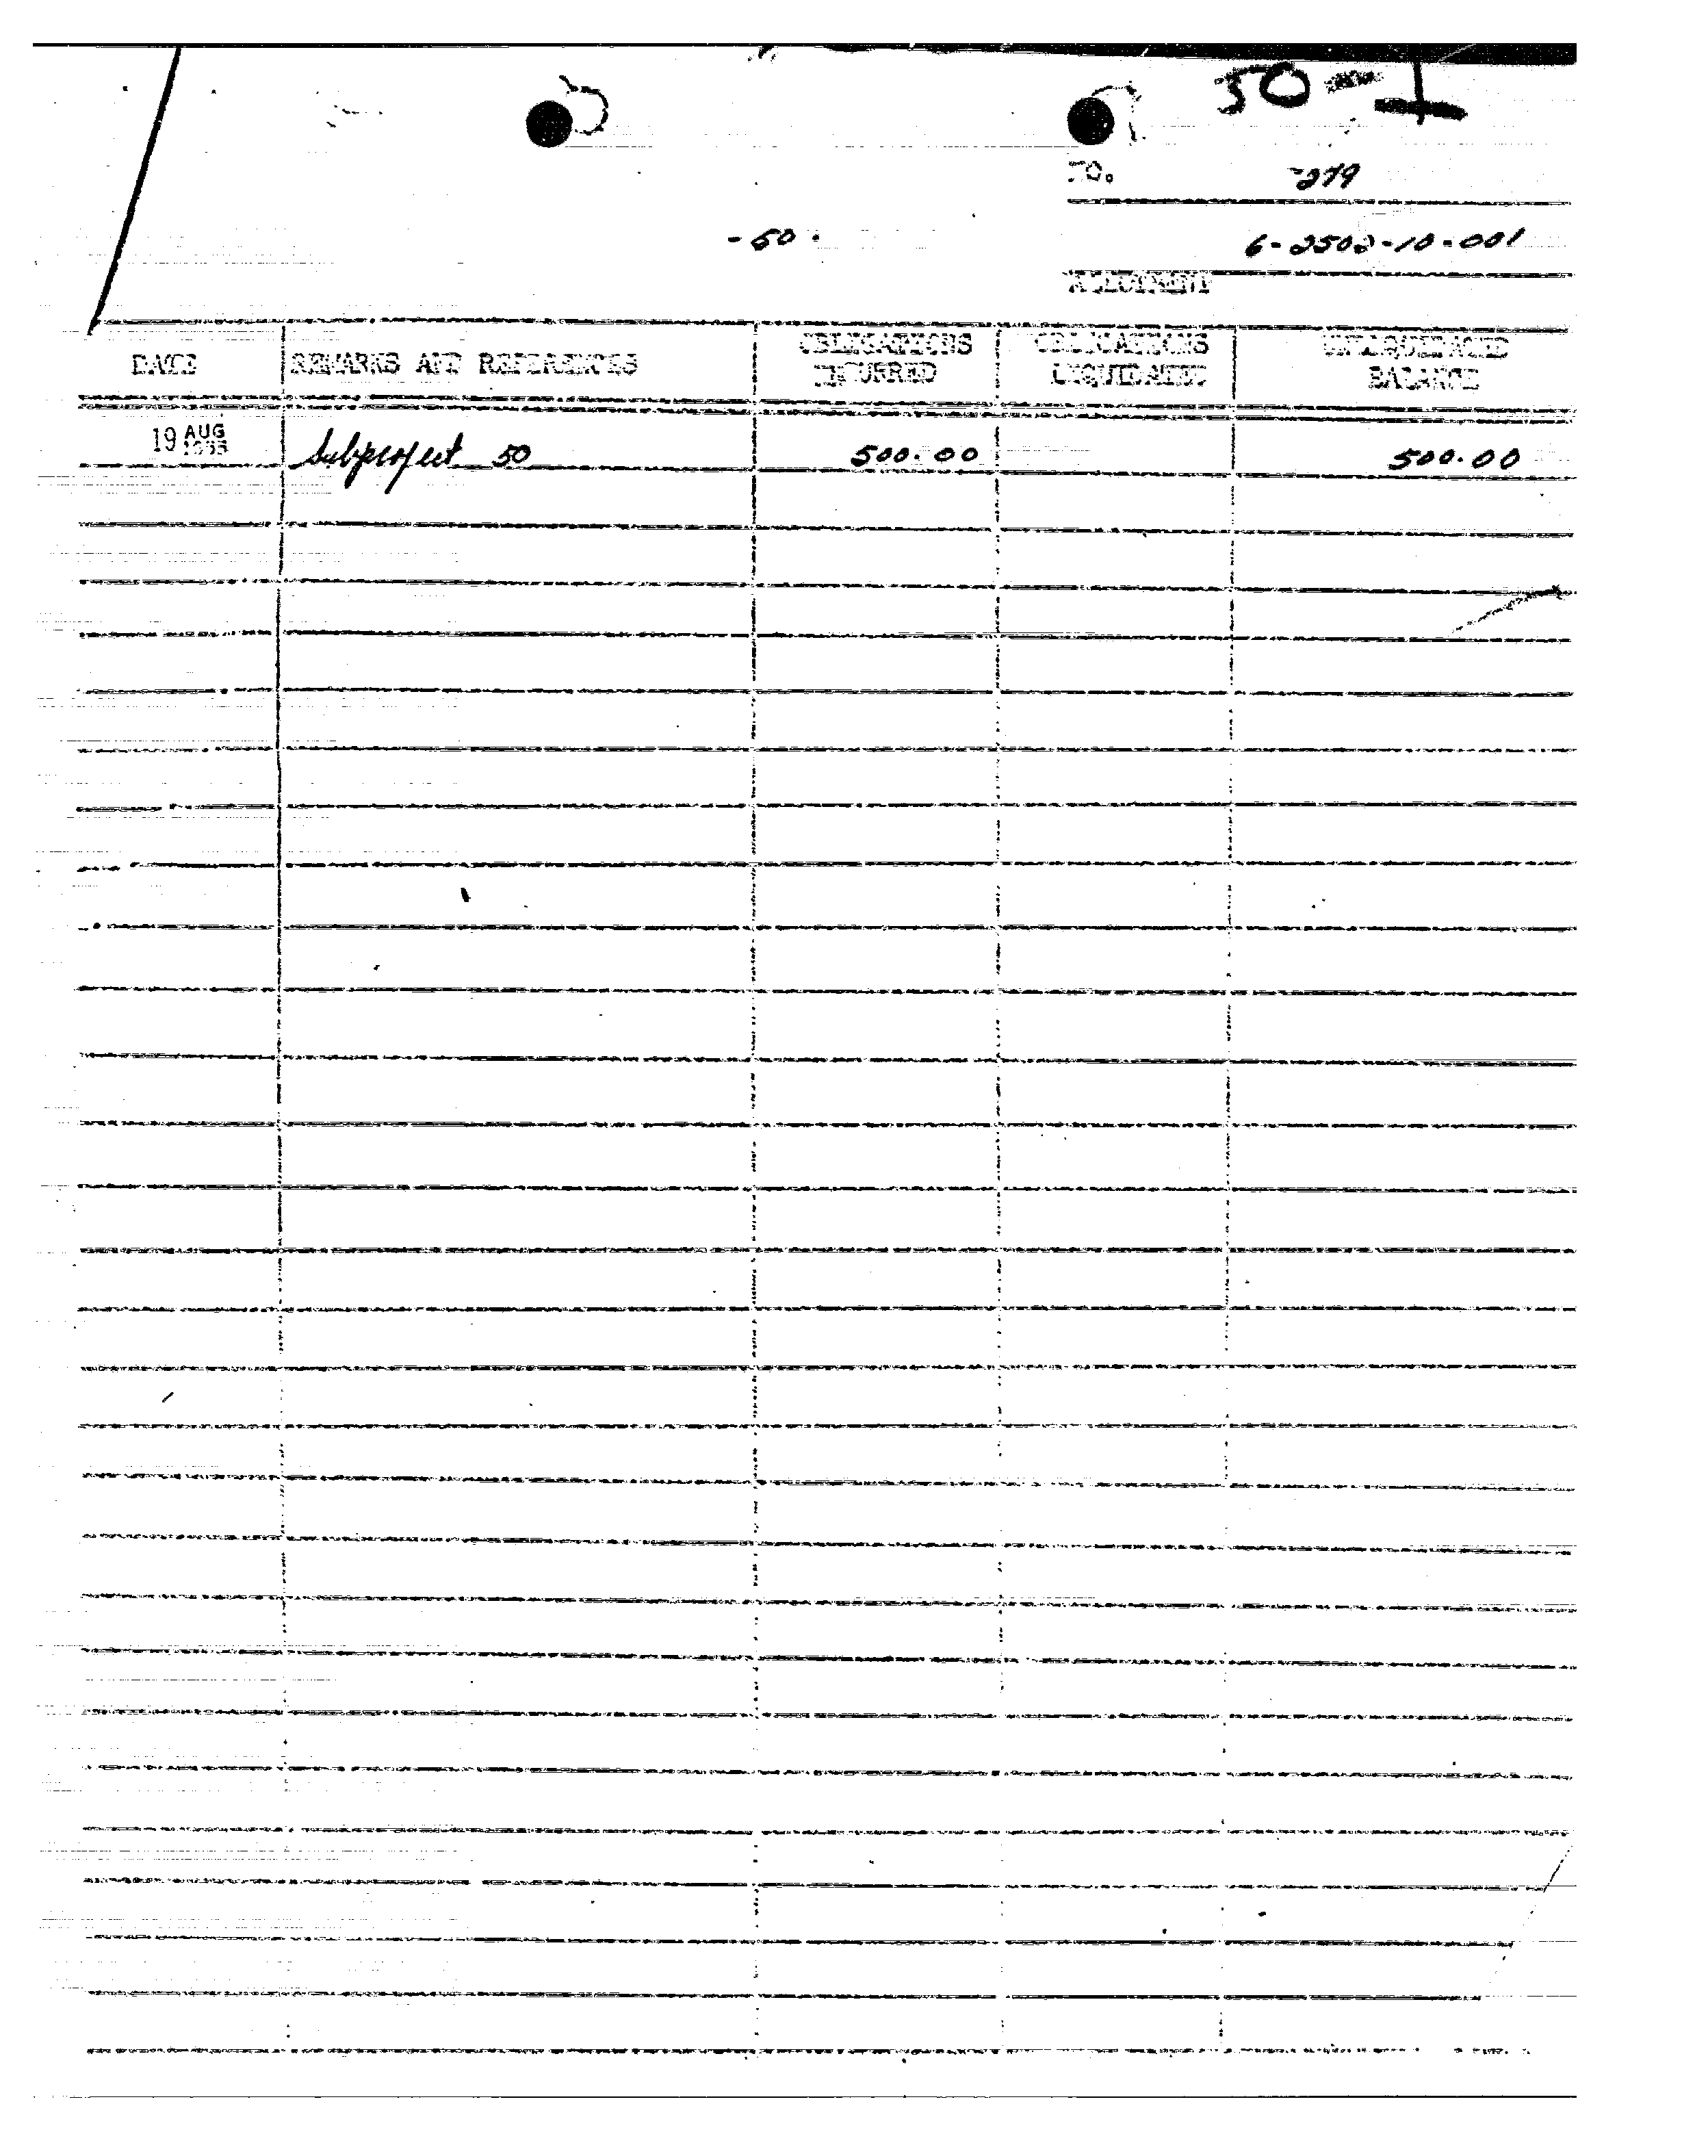 50-1
-279
-50.
6-2502-10-001
ALLOTMENT
DATE REMARKS AND REFERENCES OBLIGATIONS INCURRED OBLIGATIONS LIQUIDATED UNLIQUIDATED BALANCE
19 AUG 1955 Subproject 50 500.00 500.00